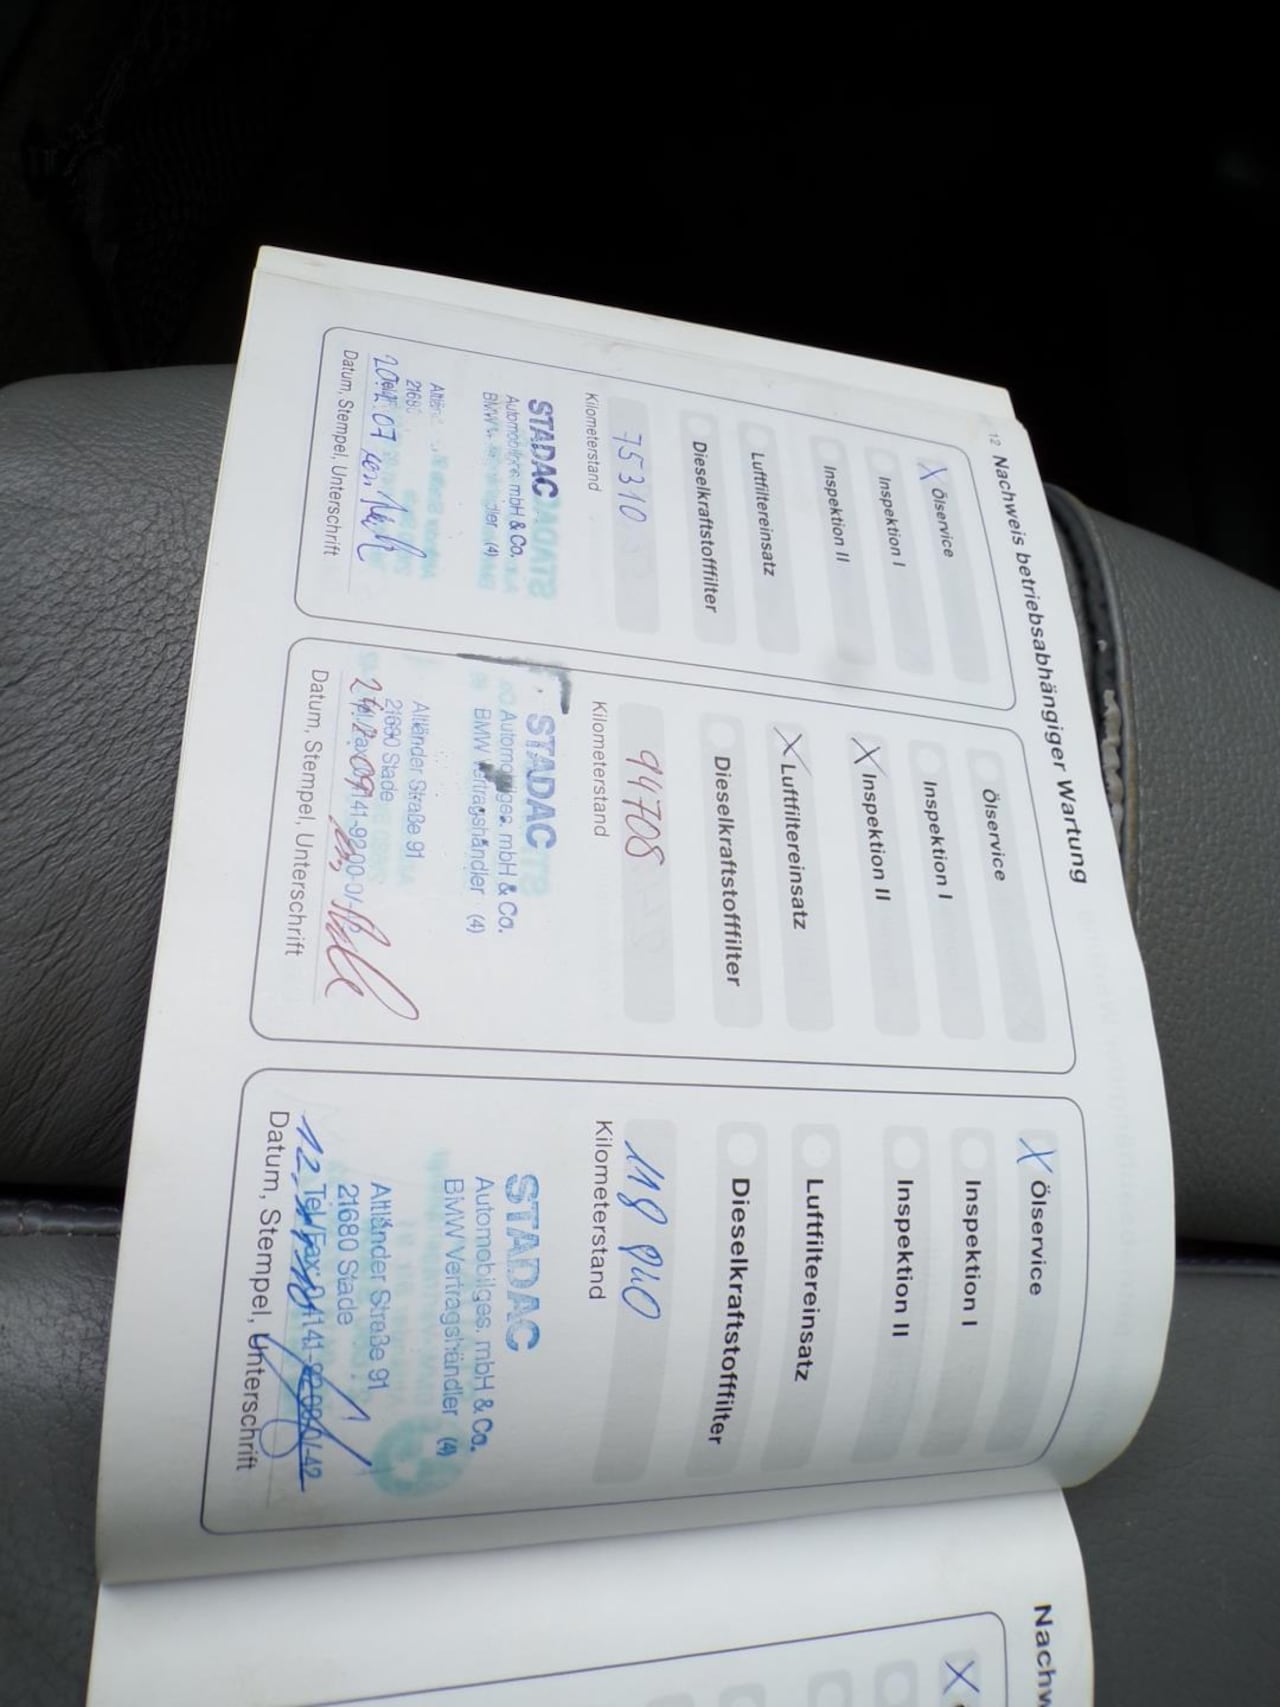 12 Nachweis betriebsabhängiger Wartung
X Ölservice
Inspektion I
Inspektion II
Luftfiltereinsatz
Dieselkraftstofffilter
75310
Kilometerstand
STADAC
Automobilges. mbH & Co.
BMW (4)
2168
07
Datum, Stempel, Unterschrift
Ölservice
Inspektion I
X Inspektion II
X Luftfiltereinsatz
Dieselkraftstofffilter
94708
Kilometerstand
STADAC
Automobilges. mbH & Co.
BMW Vertragshändler (4)
Altländer Straße 91
21680 Stade
Datum, Stempel, Unterschrift
X Ölservice
Inspektion I
Inspektion II
Luftfiltereinsatz
Dieselkraftstofffilter
118 940
Kilometerstand
STADAC
Automobilges. mbH & Co.
BMW Vertragshändler (4)
Altländer Straße 91
21680 Stade
12. Tel/Fax 04141-9200-01-42
Datum, Stempel, Unterschrift
Nachw
X